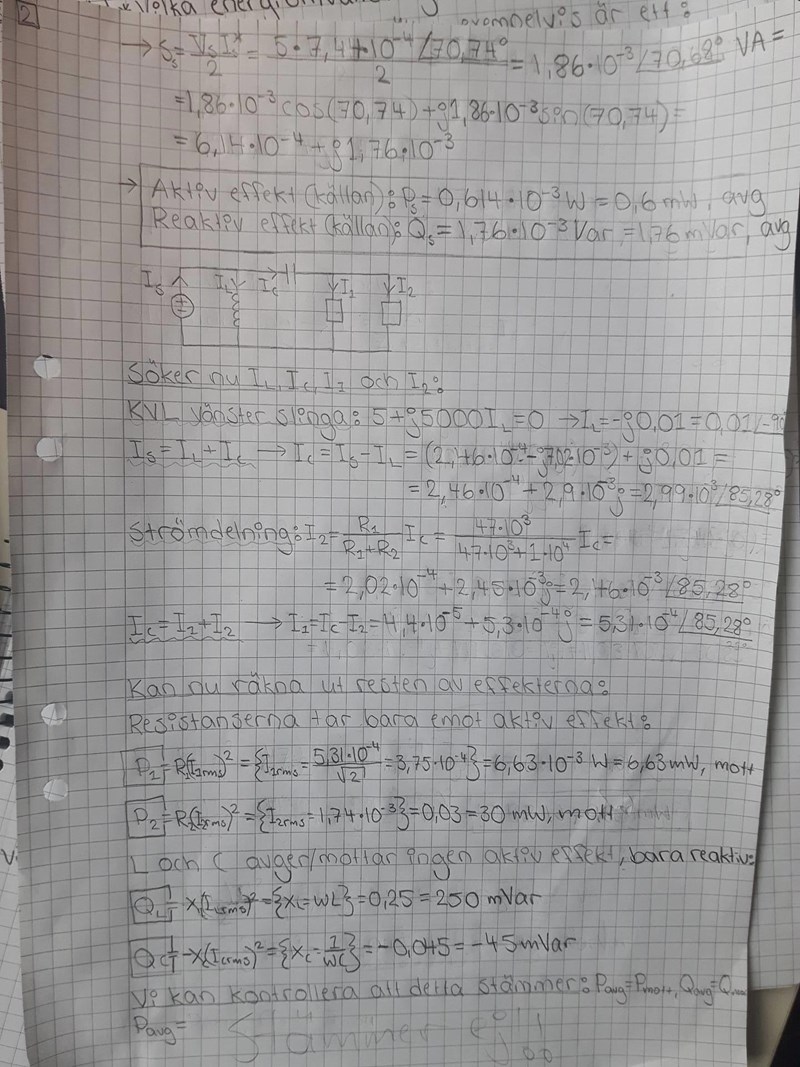 2
Vilka
är ett:
→ Ss = VsI*/2 = 5·7,44·10⁻⁴∠70,74°/2 = 1,86·10⁻³∠70,68° VA =
= 1,86·10⁻³cos(70,74)+j1,86·10⁻³sin(70,74) =
= 6,14·10⁻⁴+j1,76·10⁻³
→ Aktiv effekt (källan): Ps = 0,614·10⁻³W = 0,6 mW, avg
Reaktiv effekt (källan): Qs = 1,76·10⁻³Var = 1,76 mVar, avg
Is IL Ic I1 I2
Söker nu IL, Ic, I1 och I2:
KVL vänster slinga: 5+j5000IL=0 → IL=-j0,01=0,01∠-90
Is=IL+Ic → Ic = Is-IL = (2,46·10⁻⁴-j7,02·10⁻³)+j0,01 =
= 2,46·10⁻⁴+2,9·10⁻³j=2,99·10³∠85,28°
Strömdelning: I2 = R1/R1+R2 Ic = 47·10³/47·10³+1·10⁴ Ic =
= 2,02·10⁻⁴+2,45·10⁻³j=2,46·10⁻³∠85,28°
Ic=I2+I2 → I1=Ic-I2=4,4·10⁻⁵+5,3·10⁻⁴j = 5,31·10⁻⁴∠85,28°
Kan nu räkna ut resten av effekterna:
Resistanserna tar bara emot aktiv effekt:
P1=R1(I1rms)² = {I1rms = 5,31·10⁻⁴/√2 = 3,75·10⁻⁴} = 6,63·10⁻³ W = 6,63 mW, mott
P2=R2(I2rms)² = {I2rms = 1,74·10⁻³} = 0,03 = 30 mW, mott
L och C avger/mottar ingen aktiv effekt, bara reaktiv:
QL = X(ILrms)² = {XL = WL} = 0,25 = 250 mVar
QC = -X(Icrms)² = {Xc = 1/WC} = -0,045 = -45 mVar
Vi kan kontrollera att detta stämmer: Pavg=Pmott, Qavg=Q
Pavg= Stämmer ej!!